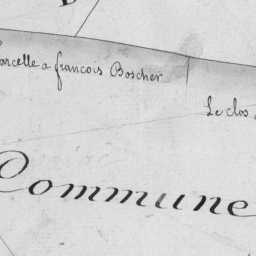 Parcelle a francois Boscher
Le clos
Commune